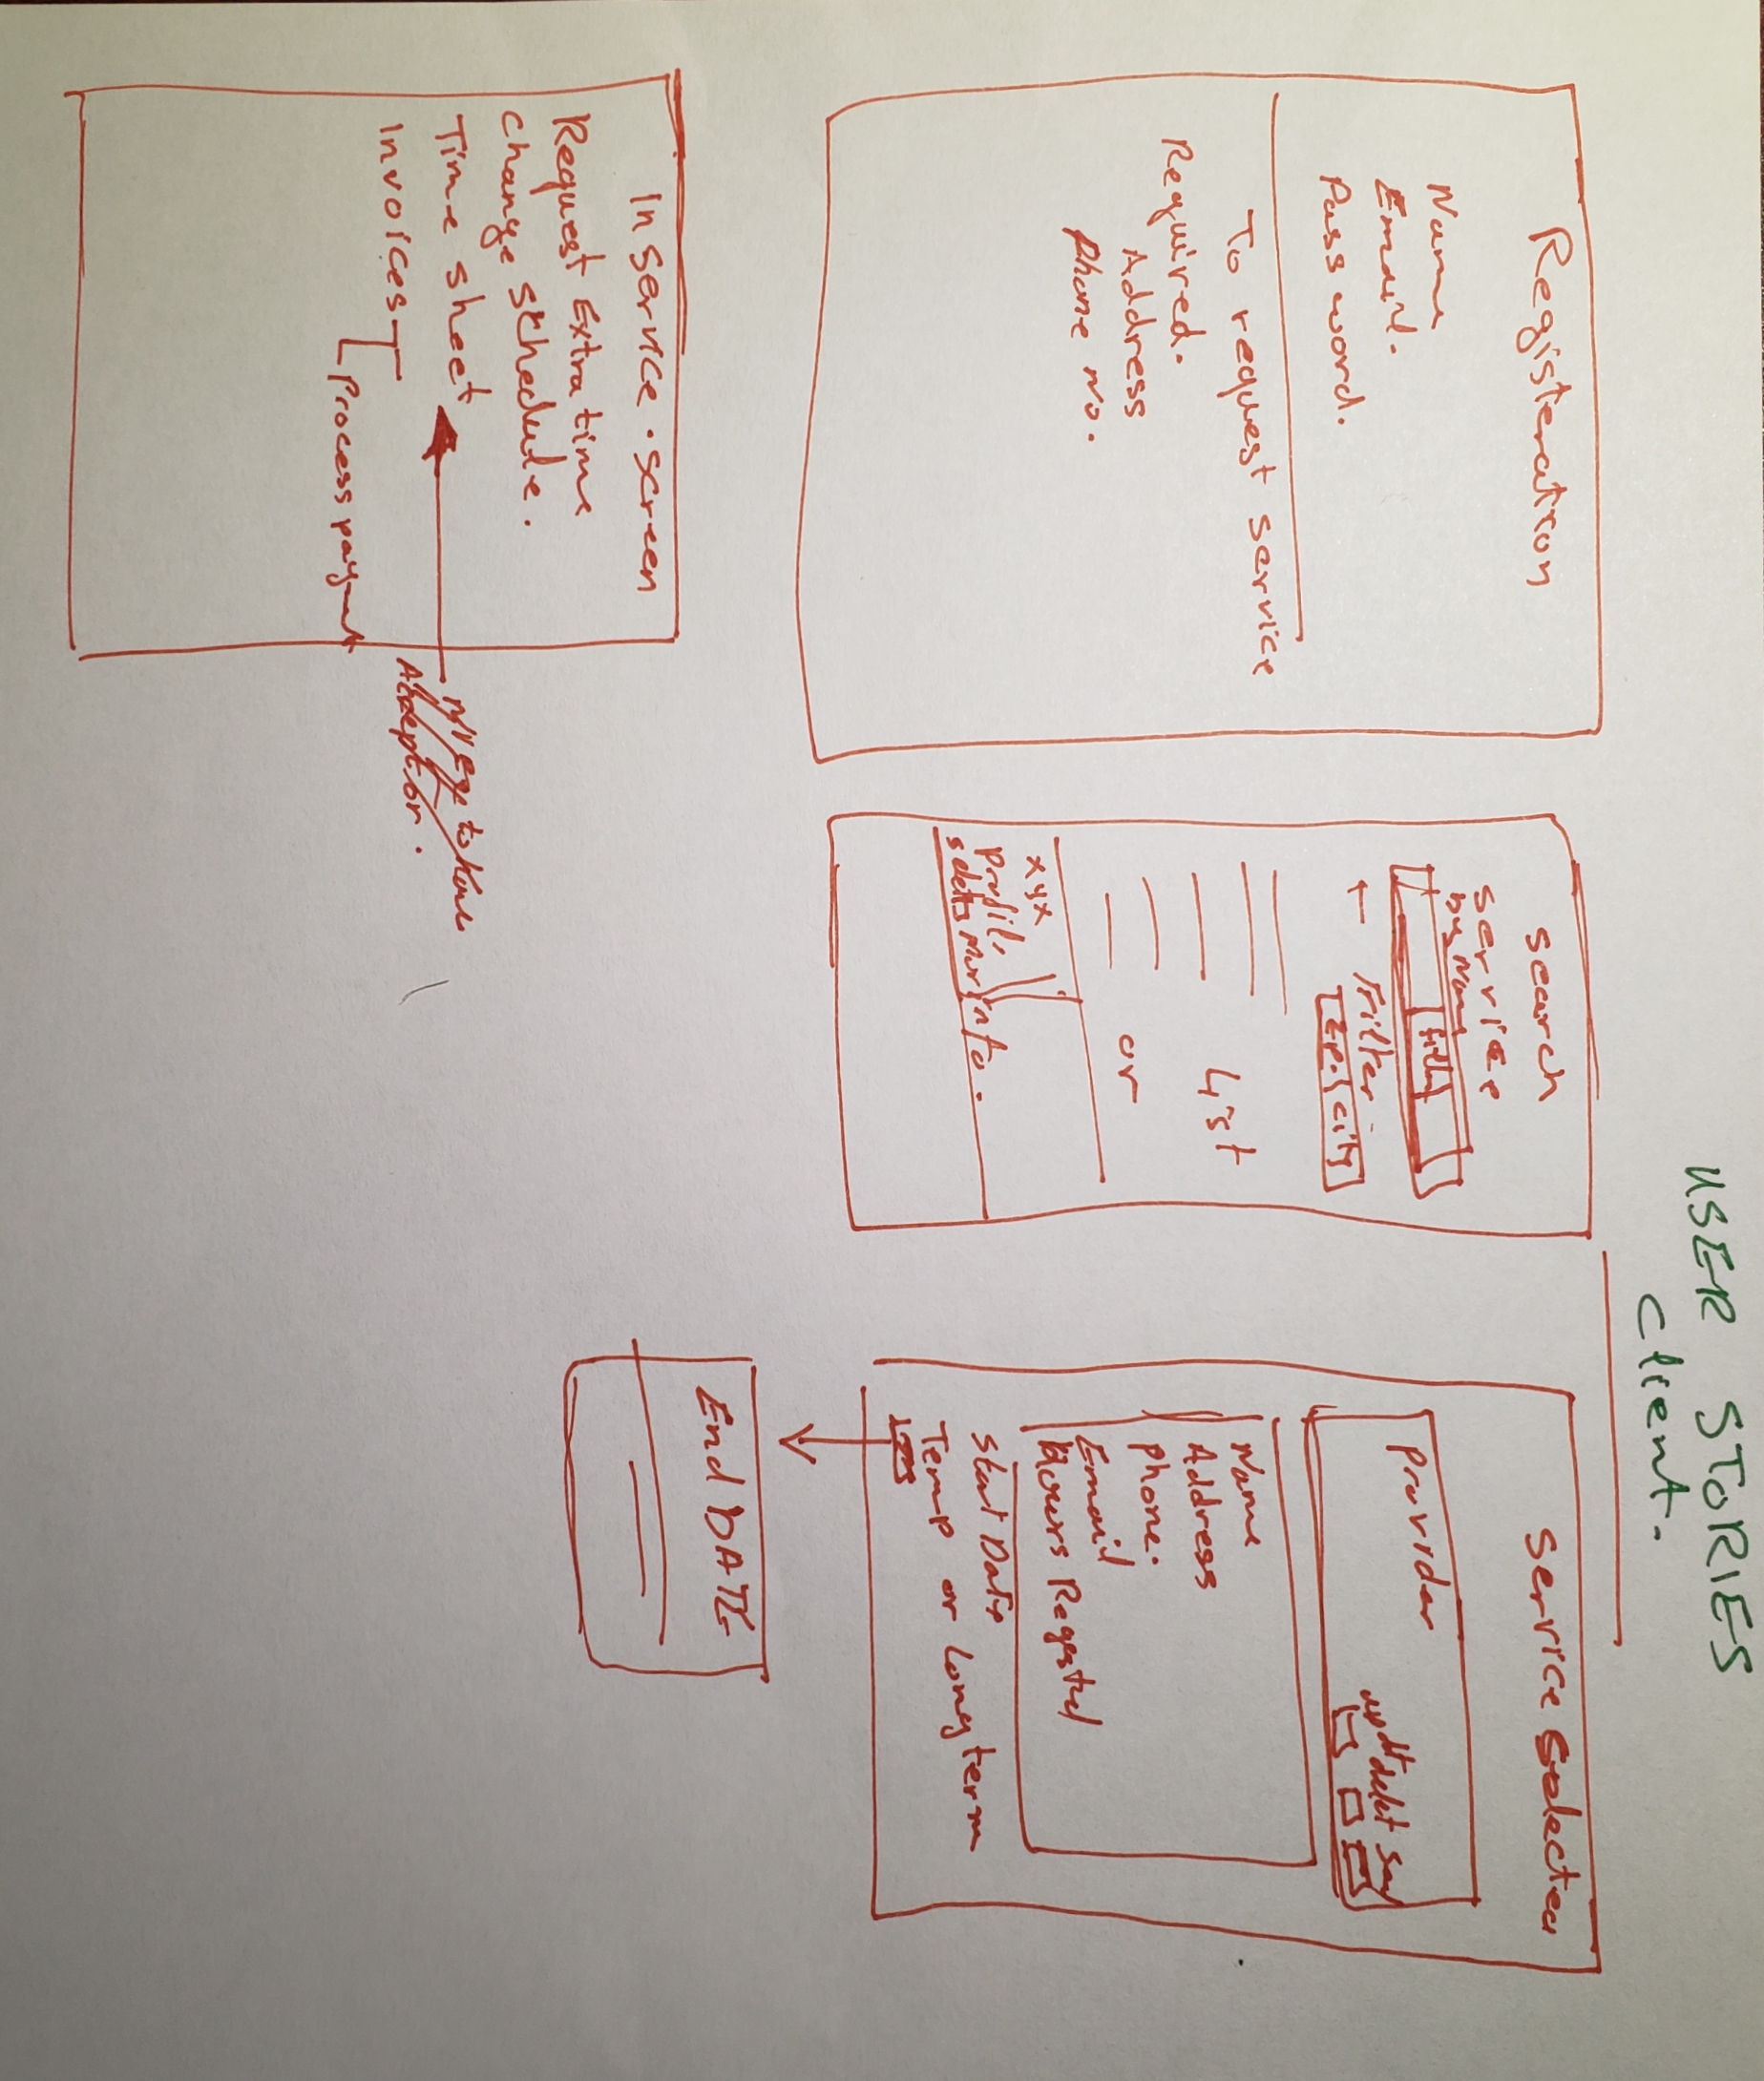 USER STORIES
Client.
Registeration
Name
Email.
Pass word.
To request service
Required.
Address
Phone no.
Search
Service
by Name
Filter
city
List
or
xyx
Profil
info.
Service Selected
Provider
Name
Address
Phone:
Email
Hours
Start Date
Temp or Long term
End DATE
In Service . Screen
Request Extra time
Change Schedule.
Time sheet
Invoices
Process
to have